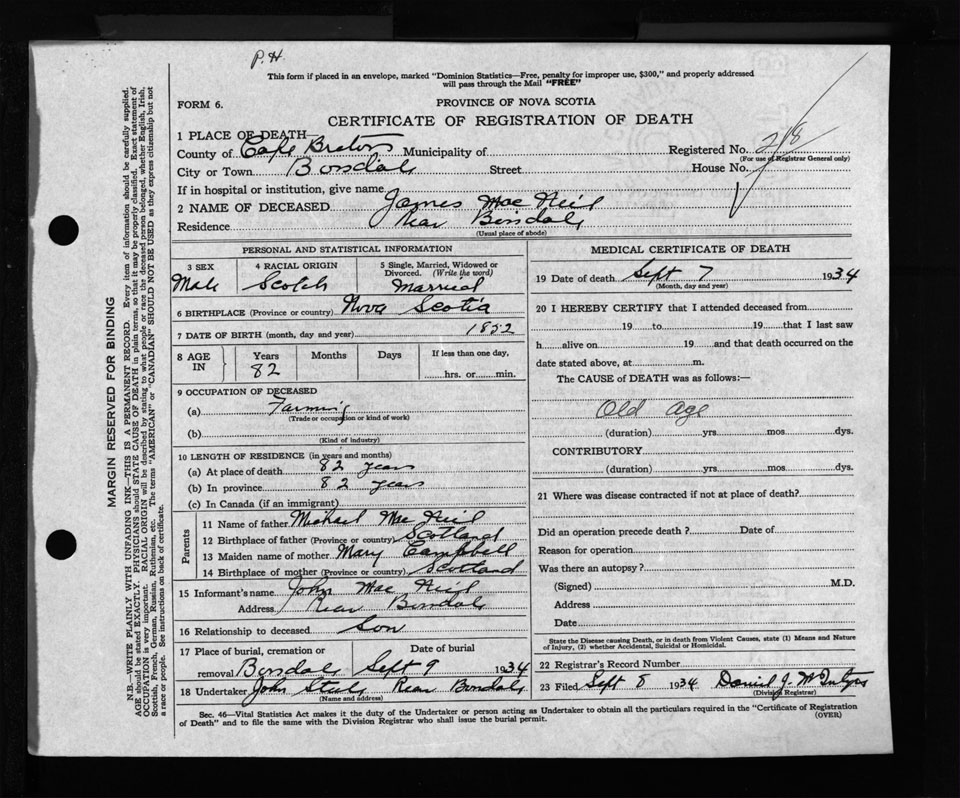 P.H
This form if placed in an envelope, marked "Dominion Statistics—Free, penalty for improper use, $300," and properly addressed
will pass through the Mail "FREE"
FORM 6.
PROVINCE OF NOVA SCOTIA
CERTIFICATE OF REGISTRATION OF DEATH
1 PLACE OF DEATH
County of Cape Breton Municipality of Registered No. 218
(For use of Registrar General only)
City or Town Boisdale Street House No.
If in hospital or institution, give name
2 NAME OF DECEASED James Mac Neil
Residence Rear Boisdale
(Usual place of abode)
PERSONAL AND STATISTICAL INFORMATION
3 SEX 4 RACIAL ORIGIN 5 Single, Married, Widowed or
Divorced. (Write the word)
Male Scotch Married
6 BIRTHPLACE (Province or country) Nova Scotia
7 DATE OF BIRTH (month, day and year) 1852
8 AGE IN Years Months Days If less than one day,
82 hrs. or min.
9 OCCUPATION OF DECEASED
(a) Farming
(Trade or occupation or kind of work)
(b)
(Kind of industry)
10 LENGTH OF RESIDENCE (in years and months)
(a) At place of death 82 years
(b) In province 82 years
(c) In Canada (if an immigrant)
Parents
11 Name of father Michael Mac Neil
12 Birthplace of father (Province or country) Scotland
13 Maiden name of mother Mary Campbell
14 Birthplace of mother (Province or country) Scotland
15 Informant's name John Mac Neil
Address Rear Boisdale
16 Relationship to deceased Son
17 Place of burial, cremation or Date of burial
removal Boisdale Sept 9 1934
18 Undertaker John Steele Rear Boisdale
(Name and address)
MEDICAL CERTIFICATE OF DEATH
19 Date of death Sept 7 1934
(Month, day and year)
20 I HEREBY CERTIFY that I attended deceased from
19 to 19 that I last saw
h alive on 19 and that death occurred on the
date stated above, at m.
The CAUSE of DEATH was as follows:—
Old Age
(duration) yrs. mos. dys.
CONTRIBUTORY
(duration) yrs. mos. dys.
21 Where was disease contracted if not at place of death?
Did an operation precede death? Date of
Reason for operation
Was there an autopsy?
(Signed) M.D.
Address
Date
State the Disease causing Death, or in death from Violent Causes, state (1) Means and Nature
of Injury, (2) whether Accidental, Suicidal or Homicidal.
22 Registrar's Record Number
23 Filed Sept 8 1934 Daniel J. McIntyre
(Division Registrar)
Sec. 46—Vital Statistics Act makes it the duty of the Undertaker or person acting as Undertaker to obtain all the particulars required in the "Certificate of Registration
of Death" and to file the same with the Division Registrar who shall issue the burial permit. (OVER)
MARGIN RESERVED FOR BINDING
N.B.—WRITE PLAINLY WITH UNFADING INK—THIS IS A PERMANENT RECORD. Every item of information should be carefully supplied.
AGE should be stated EXACTLY. PHYSICIANS should STATE CAUSE OF DEATH in plain terms, so that it may be properly classified. Exact statement of
OCCUPATION is very important. RACIAL ORIGIN will be described by stating to what people or race the deceased person belonged, whether English, Irish,
Scottish, French, German, Russian, Ruthenian, etc. The terms "AMERICAN" or "CANADIAN" SHOULD NOT BE USED as they express citizenship but not
a race or people. See instructions on back of certificate.